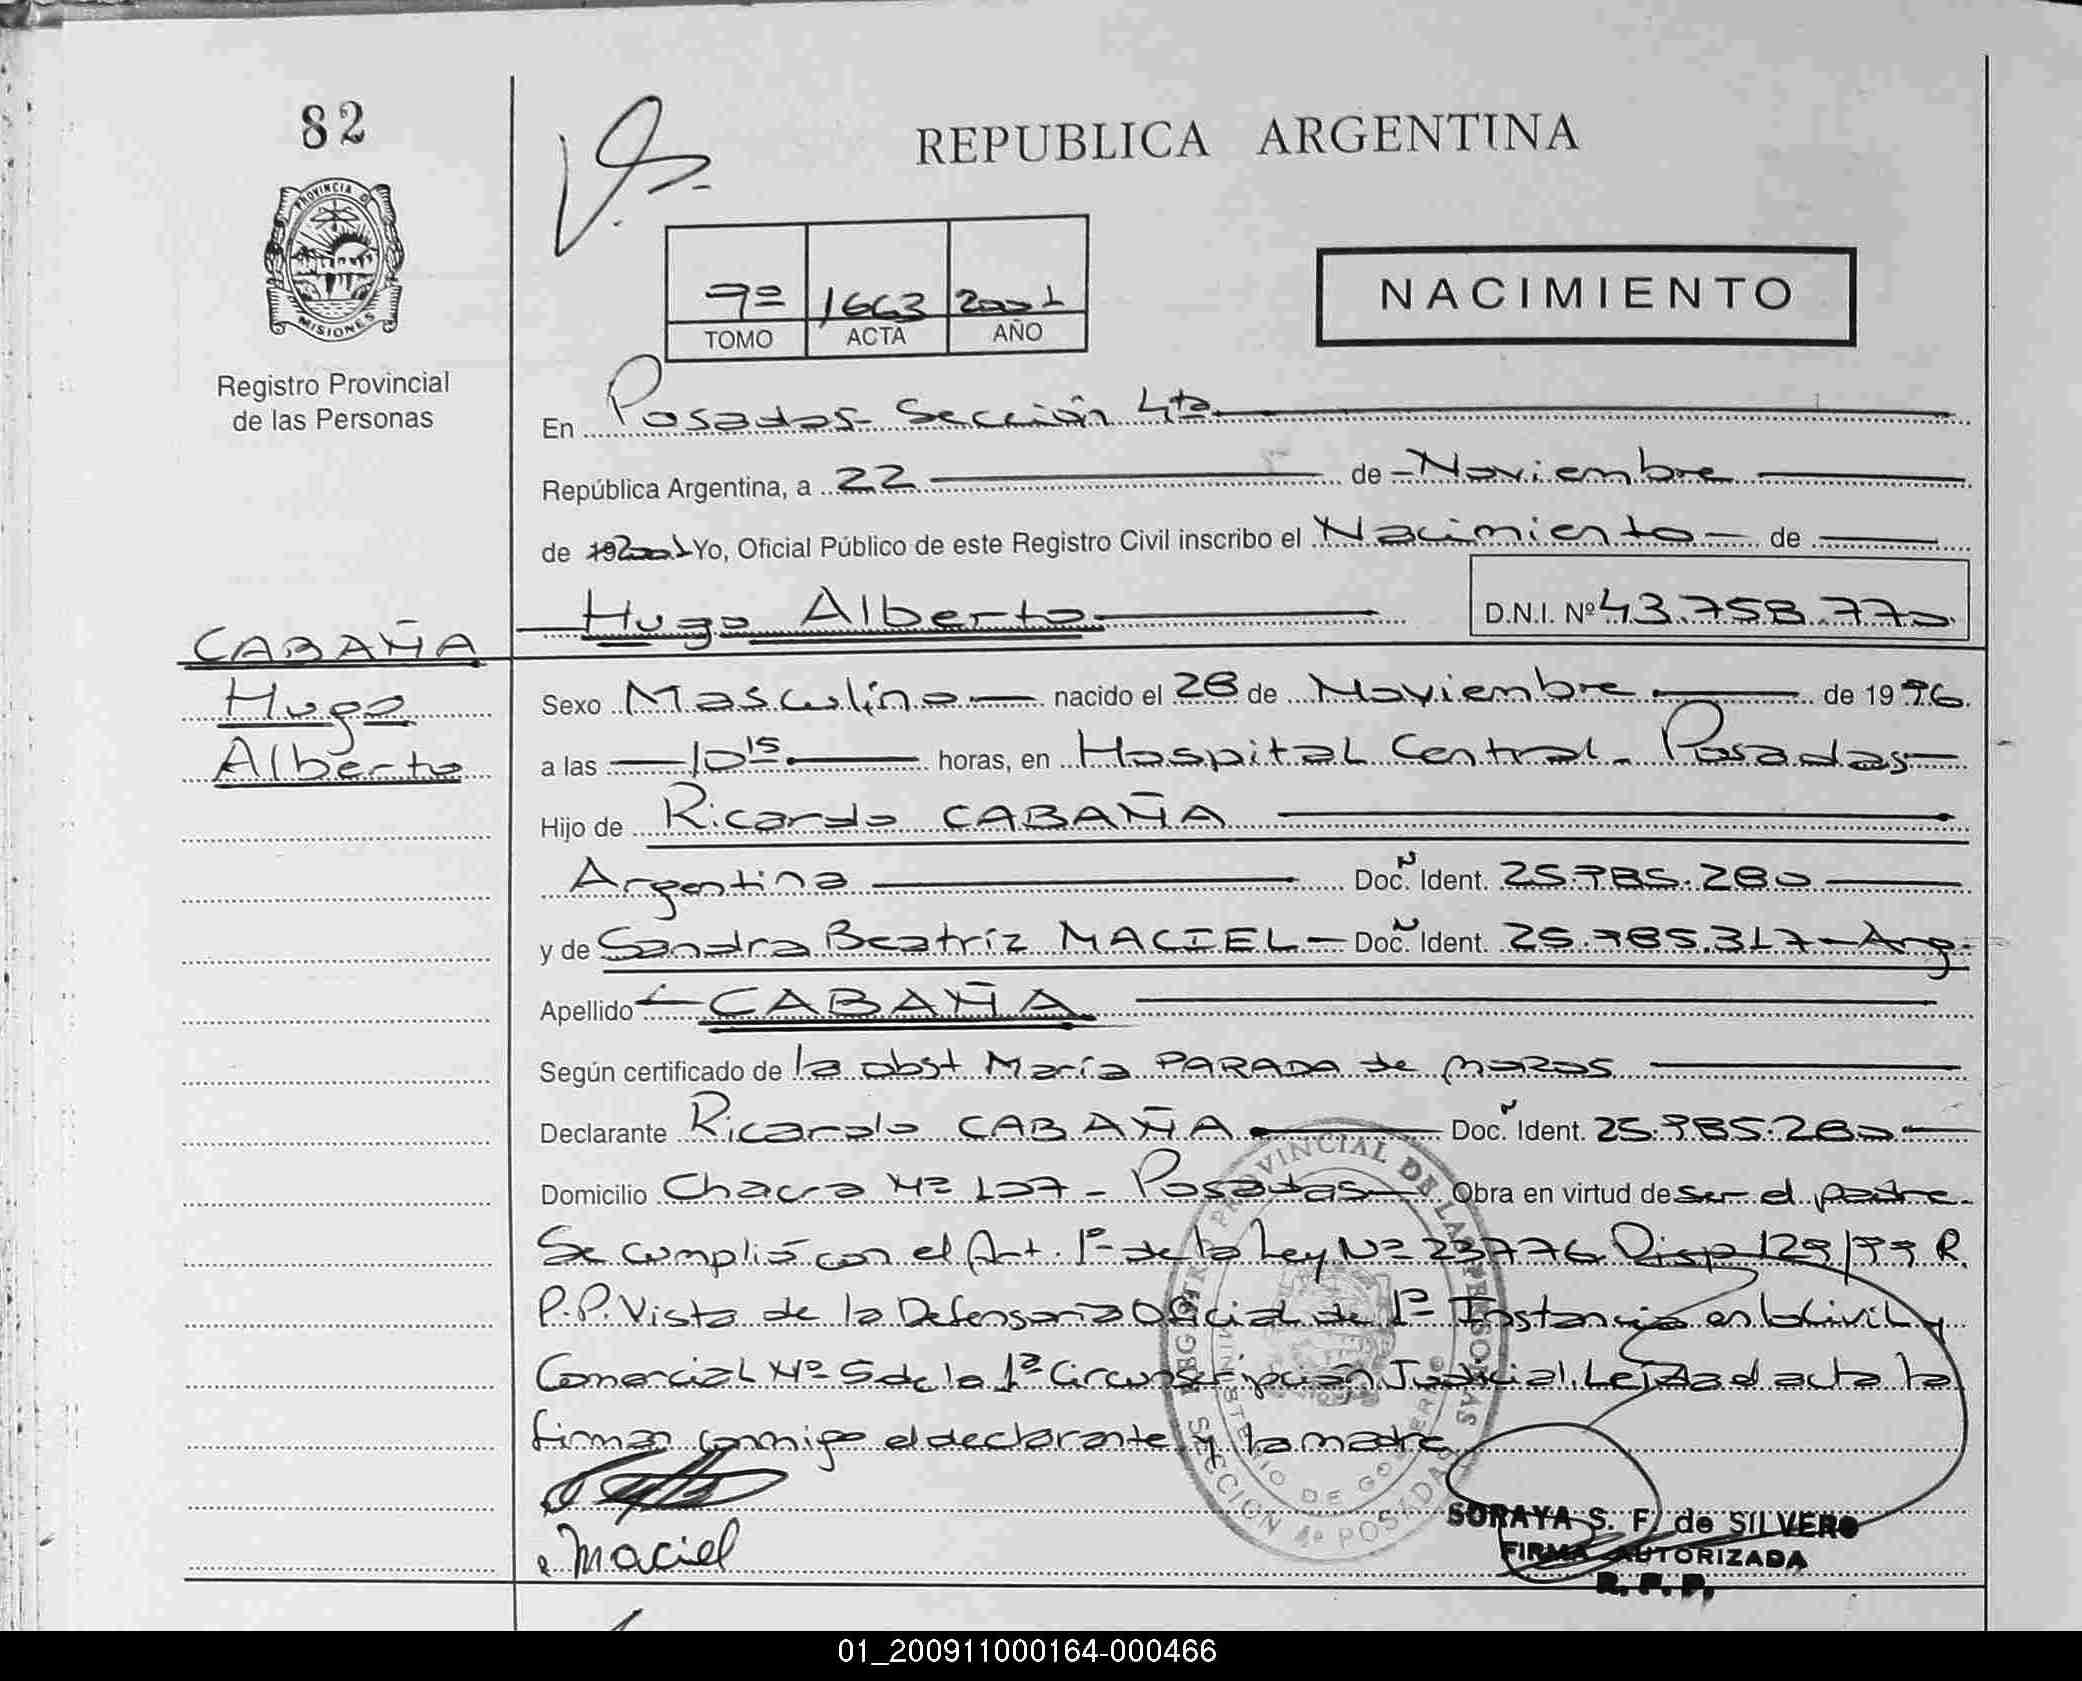 82
REPUBLICA ARGENTINA
PROVINCIA DE
MISIONES
Registro Provincial
de las Personas
9º 1663 2001
TOMO ACTA AÑO
NACIMIENTO
En Posadas- Sección 4ta
República Argentina, a 22 de Noviembre
de 192001 Yo, Oficial Público de este Registro Civil inscribo el Nacimiento de
Hugo Alberto D.N.I. Nº 43.758.770
CABAÑA
Hugo
Alberto
Sexo Masculino nacido el 28 de Noviembre de 1996.
a las 10 15 horas, en Hospital Central - Posadas
Hijo de Ricardo CABAÑA
Argentina Doc. Ident. 25.985.280
y de Sandra Beatríz MACIEL - Doc. Ident. 25.985.317 - Arg.
Apellido CABAÑA
Según certificado de la obst María PARADA de
Declarante Ricardo CABAÑA Doc. Ident. 25.985.280
Domicilio Chacra Nº 107 - Posadas Obra en virtud de ser el padre.
Se cumplió con el Art. 1º de la Ley Nº 23776 Disp 129/99 R.
P.P. Vista de la Defensoría Oficial de 1ª Instancia en lo Civil y
Comercial Nº 5 de la 1ª Circunscripción Judicial. Leída el acta la
firman conmigo el declarante y la madre
Maciel
REGISTRO PROVINCIAL DE LAS PERSONAS
MINISTERIO DE GOBIERNO
SECCION 4ª POSADAS
SORAYA S. F. de SILVERO
FIRMA AUTORIZADA
R. P. P.
01_200911000164-000466